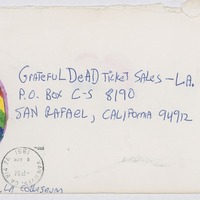 GRATEFUL DEAD TICKET SALES - L.A.
P.O. BOX C-S 8190
SAN RAFAEL, CALIFORNIA 94912
LA COLISEUM